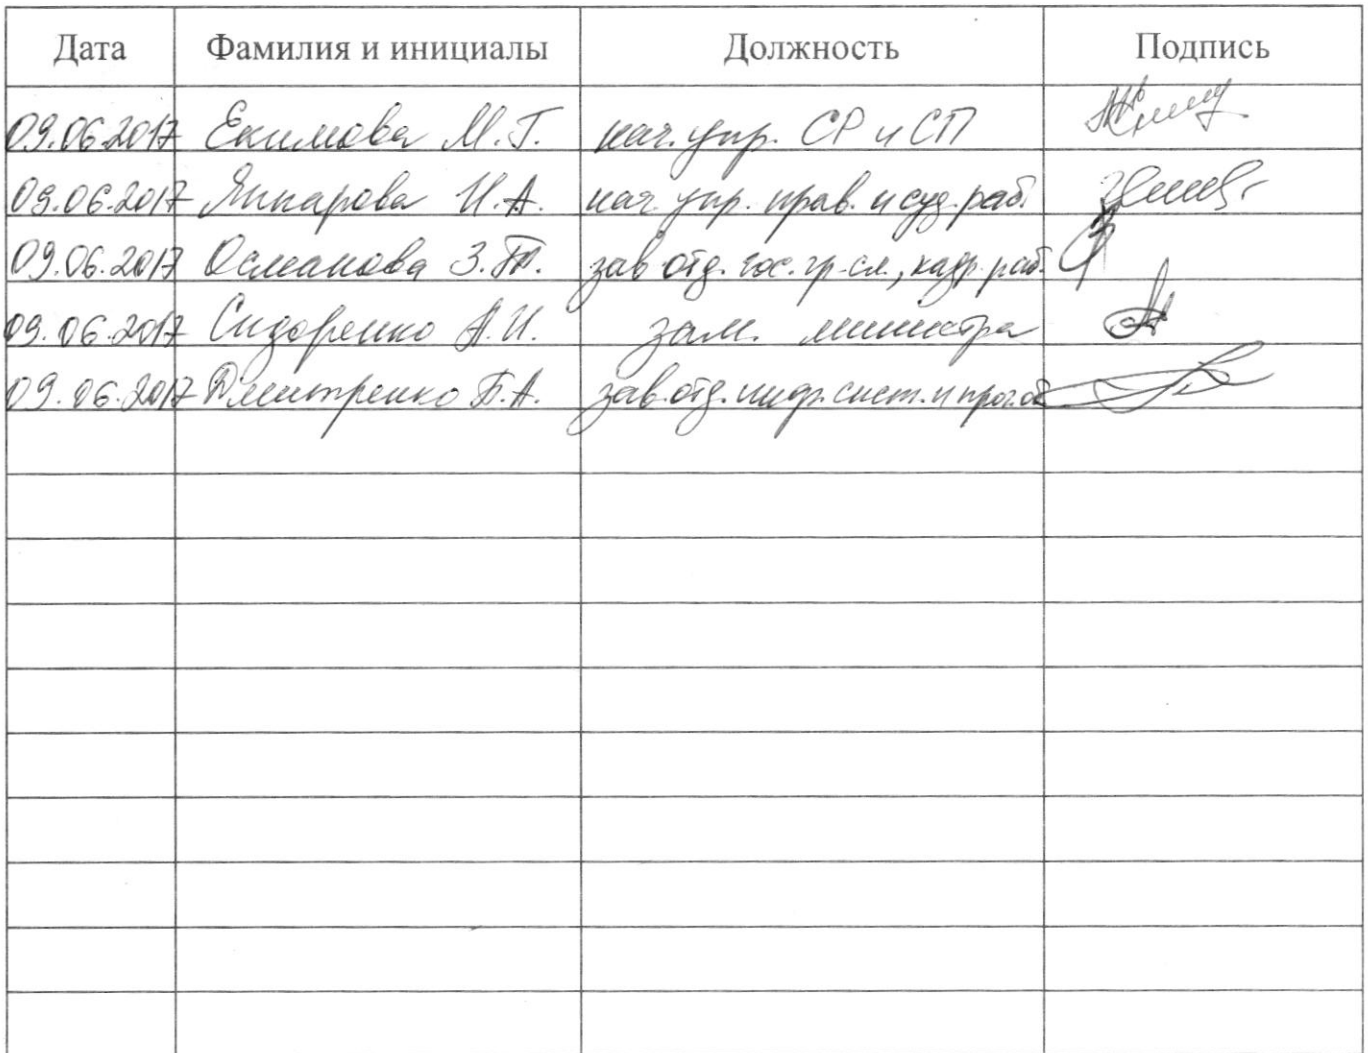 Дата Фамилия и инициалы Должность Подпись
09.06.2017 Екимова М.Г. нач. упр. СР и СП
09.06.2017 Яппарова И.А. нач. упр. прав. и суд. раб.
09.06.2017 Османова З.Т. зав отд. гос. гр. сл., кадр. раб.
09.06.2017 Сидоренко А.И. зам. министра
09.06.2017 Дмитренко Б.А. зав. отд. инф. сист. и прог. об